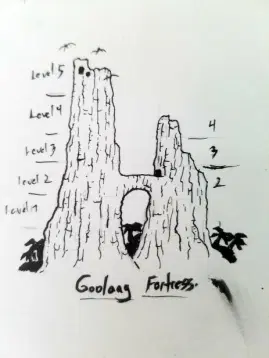 Level 5
Level 4
4
Level 3
3
Level 2
2
Level 1
Goolang Fortress.